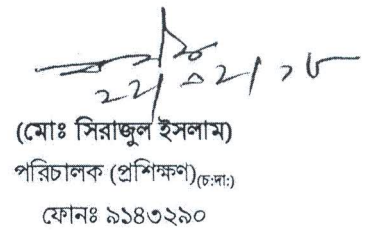 (মোঃ সিরাজুল ইসলাম)
পরিচালক (প্রশিক্ষণ)(চ:দা:)
ফোনঃ ৯১৪৩২৯০